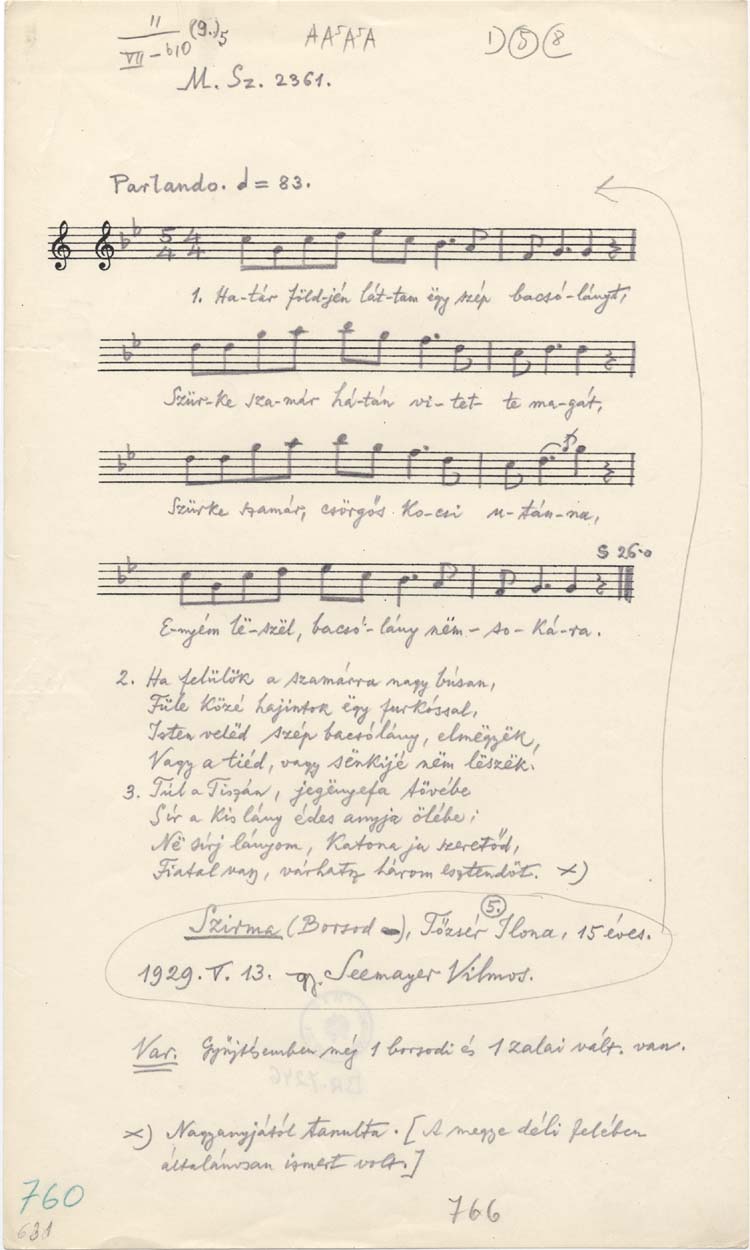 II
VII – 610 (9.)5
A A⁵ A⁵ A
1) 5 8
M. Sz. 2361.
Parlando. = 83.
5 4
4 4
1. Ha-tár föld-jén lát-tam ëgy szép bacsó-lányt,
Szür-ke sza-már há-tán vi-tet-te ma-gát,
Szürke szamár, csörgős Ko-csi u-tán-na,
S 26-o
E-nyém lë-szël, bacsó-lány nëm-so-ká-ra.
2. Ha felülök a szamárra nagy búsan,
Füle közé hajintok ëgy furkóssal,
Isten velëd szép bacsólány, elmëgyëk,
Vagy a tiéd, vagy sënkijé nëm lëszëk.
3. Túl a Tiszán, jegënyefa tövébe
Sír a kis lány édes anyja ölébe;
Në sírj lányom, Katona ja szeretőd,
Fiatal vagy, várhatsz három esztendőt. x)
5.
Szirma (Borsod), Tőzsér Ilona, 15 éves.
1929. V. 13. gy. Seemayer Vilmos.
Var. Gyűjtésemben még 1 borsodi és 1 zalai vált. van.
x) Nagyanyjától tanulta. [A megye déli felében
általánosan ismert volt.]
760
631
766